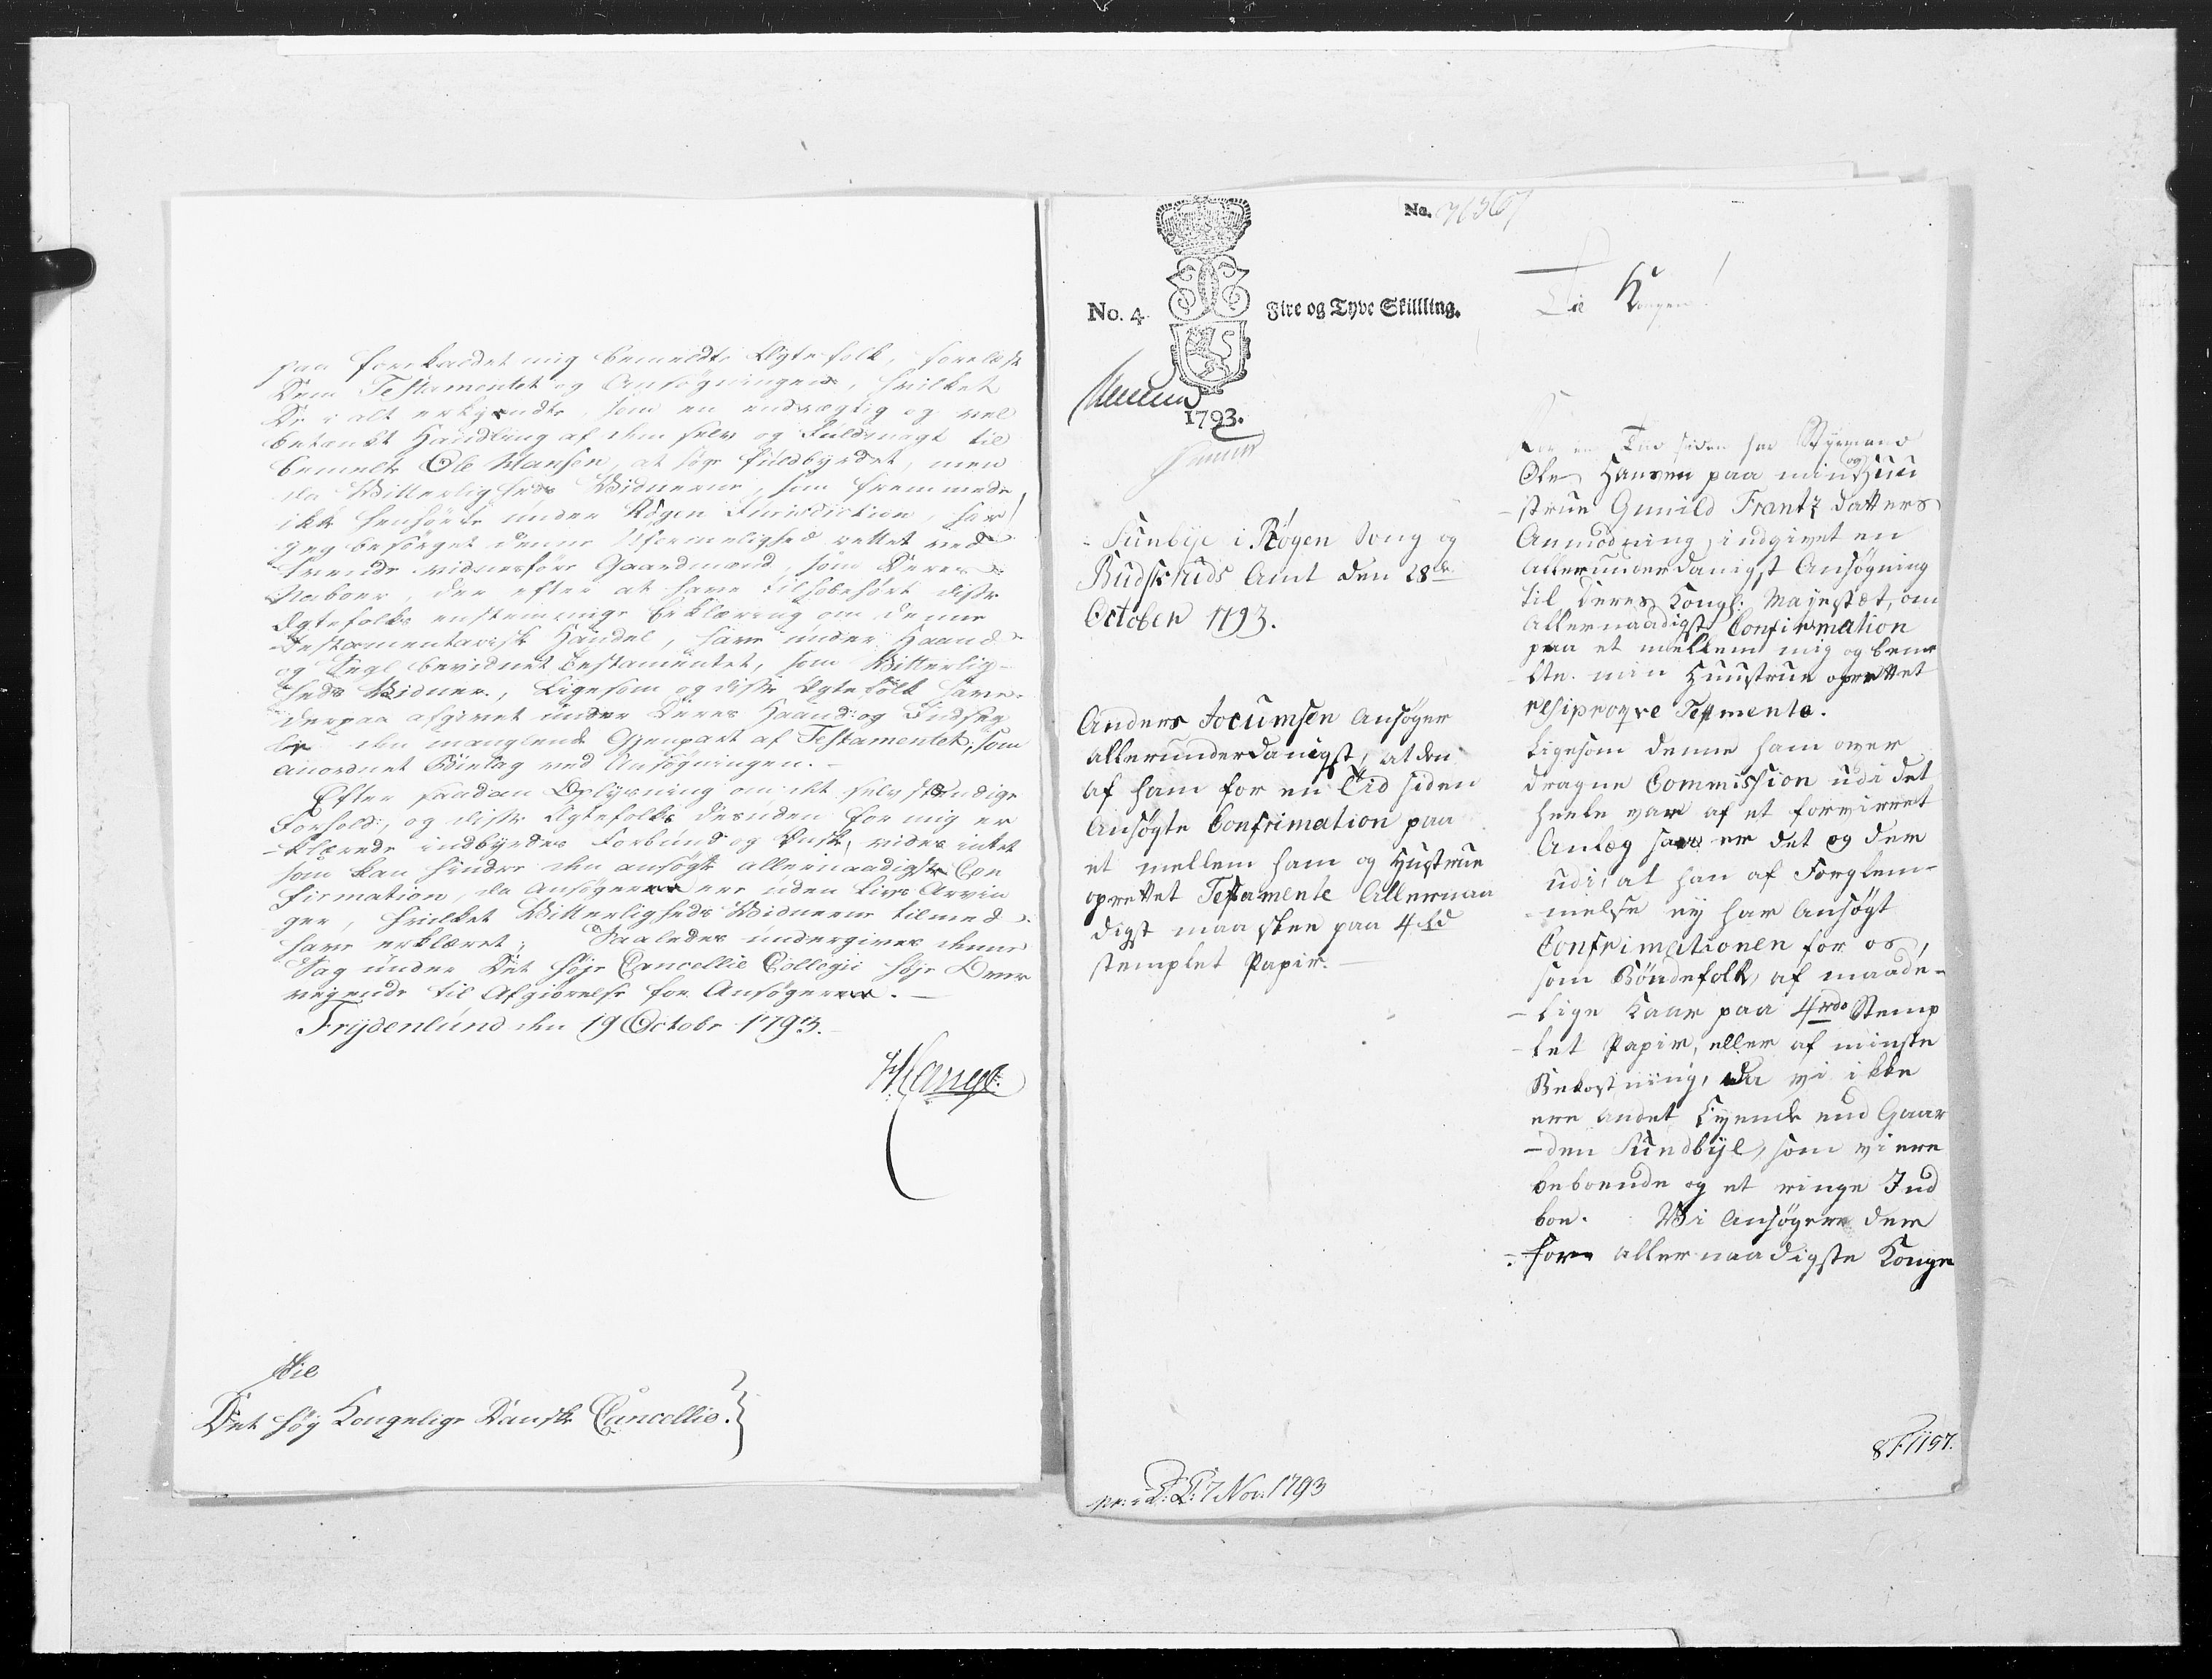 paa forekaldet mig bemeldte Ægtefolk, forelæst
Dem Testamentet og Ansøgningen, hvilket
De i alt erkjendte, som en endrægtig og vel
betænkt Handling af dem selv og Fuldmagt til
bemelte Ole Hansen, at søge fuldbyrdet, men
da Vitterligheds Vidnerne, som fremmede
ikke henhørte under Røgen Jurisdiction, har
jeg besørget denne Uformelighed rettet ved
tvende vidnesføre Gaardmænd, som Deres
Naboer, der efter at have tilhobehørt disse
Ægtefolks enstemmige Erklæring om denne
Testamentariske Handel, have under Haand
og Segl bevidnet Testamentet, som Vitterlig-
heds Vidner, ligesom og disse Ægtefolk have
derpaa afgivet under Deres Haand og Indseg
ler den manglende Gjenpart af Testamentet, som
anordnet Bielag ved Ansøgningen.-
Efter saadan Oplysning om det selvstændige
Forhold, og disse Ægtefolks desuden for mig er
-klærede indbyrdes Forbund og Ønske, vides intet
som kan hindre den ansøgte allernaadigste Con
firmation, da Ansøgerne ere uden Livs Arvin
ger, hvilket Vitterligheds Vidnerne tilmed
have erklæret; Saaledes undergives denne
Sag under Det høje Cancellie Collegii høje Over
vejende til Afgiørelse for Ansøgerne.-
Frydenlund den 19 Octobr 1793.
Til
Det høy Kongelige Danske Cancellie.
No.
No. 4
Fire og Tyve Skillling.
1793.
Til Kongen!
Sunbye i Røgen Sogn og
Budskruds Amt den 28de
October 1793.
Anders Jocumsen Ansøger
allerunderdanigst, at den
af ham for en Tid siden
Ansøgte Confrimation paa
et mellem ham og Hustrue
oprettet Testamente Allernaa
digst maa skee paa 4 rd
stemplet Papir.-
pr: i D: C: 7 Nov. 1793
For en Tid siden har Styrmand
Ole Hansen paa min og Huu
-strue Gunild Frantz datters
Anmodning, indgivet en
Allerunderdanigst Ansøgning
til Deres Kongl: Majestæt, om
Allernaadigst Confirmation
paa et mellem mig og bem
-lte min Huustrue oprettet
resiproqve Testmente.
Ligesom denne ham over
dragne Commission udi det
heele var af et forvirret
Anlæg saa er det og der
udi, at han af Forglem-
melse ey har Ansøgt
Confrimationen for os,
som Bøndefolk, af maade-
-lige Kaar paa 4 rdr Stemp
-let Papir, eller af minste
Bekostning, da vi ikke
ere andet Eyende end Gaar
-den Sundbye, som vi ere
beboende og et ringe Ind
boe. Vi Ansøgere der
-fore allernaadigste Konge